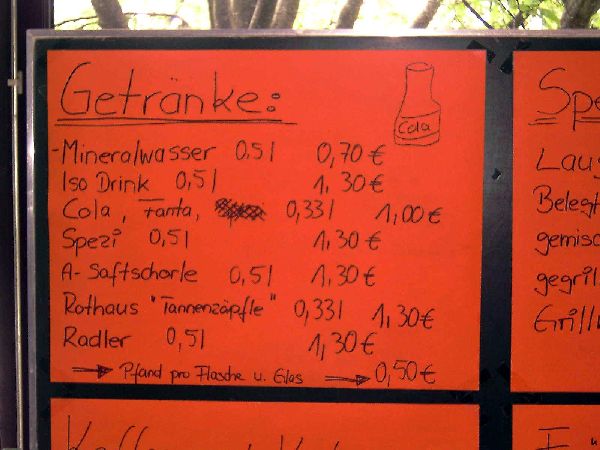 Getränke:
Cola
- Mineralwasser 0,5l 0,70 €
Iso Drink 0,5l 1,30 €
Cola, Fanta, 0,33l 1,00 €
Spezi 0,5l 1,30 €
A-Saftschorle 0,5l 1,30 €
Rothaus "Tannenzäpfle" 0,33l 1,30 €
Radler 0,5l 1,30 €
→ Pfand pro Flasche u. Glas → 0,50 €
Spe
Laug
Belegt
gemisc
gegril
Grill